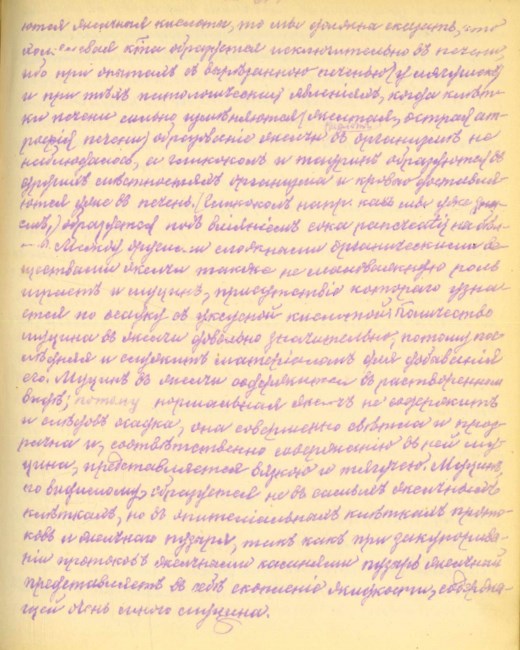 ются желчная кислота, то мы должны сказать, что
хол. свая к-та образуется исключительно въ печени,
ибо при опытахъ съ вырѣзанною печенью (у лягушекъ)
и при тѣхъ патологическихъ явленіяхъ, когда клѣт-
ки печени сильно измѣняются (желтая, острая ат-
рофія печени) образованіе желчи въ организмѣ не
наблюдалось, а гликоколъ и тауринъ образуются въ
другихъ мѣстностяхъ организма и кровью доставля-
ются уже въ печень. (Гликоколъ напр. какъ мы уже зна-
емъ,) образуется подъ вліяніемъ сока pancreatis на
Между другими сложными органическими ве-
ществами желчи также не маловажную роль
играетъ и муцинъ, присутствіе котораго узна-
ется по осадку съ уксусной кислотой. Количество
муцина въ желчи довольно значительно, потому пос-
лѣдняя и служитъ матеріаломъ для добыванія
его. Муцинъ въ желчи содержится въ растворенномъ
видѣ; потому нормальная желчь не содержитъ
и слѣдовъ осадка, она совершенно свѣтла и проз-
рачна и, соотвѣтственно содержанію въ ней му-
цина, представляется вязкою и тягучею. Муцинъ,
по видимому, образуется не въ самыхъ желчныхъ
клѣткахъ, но въ эпителіальныхъ клѣткахъ прото-
ковъ и желчнаго пузыря, такъ какъ при закупорива-
ніи протоковъ желчными камнями пузырь желчный
представляетъ въ себѣ скопленіе жидкости, содержа-
щей очень много муцина.